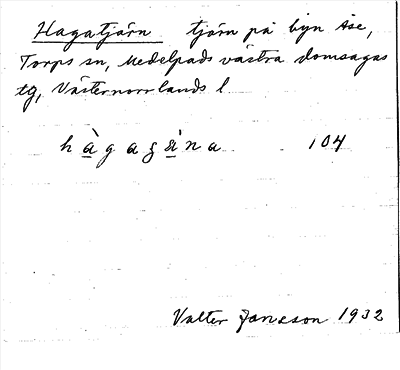 Hagatjärn tjärn på byn Åse,
Torps sn, Medelpads västra domsagas
tg, Västernorrlands l
hàgagäna 104
Valter Jansson 1932